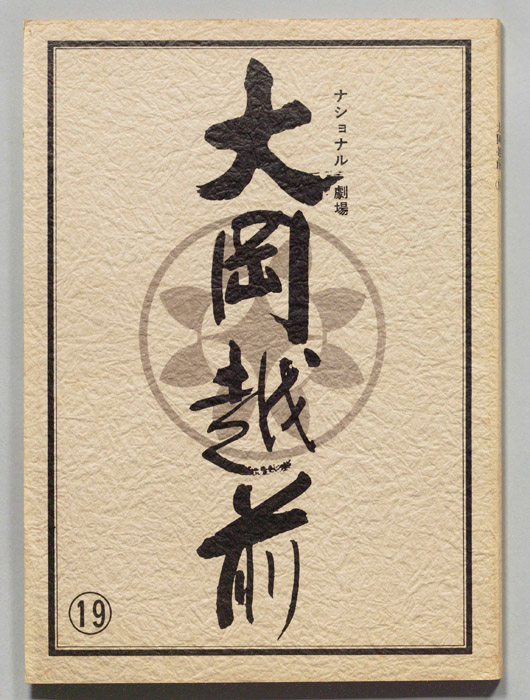 ナショナル劇場
大岡越前
19